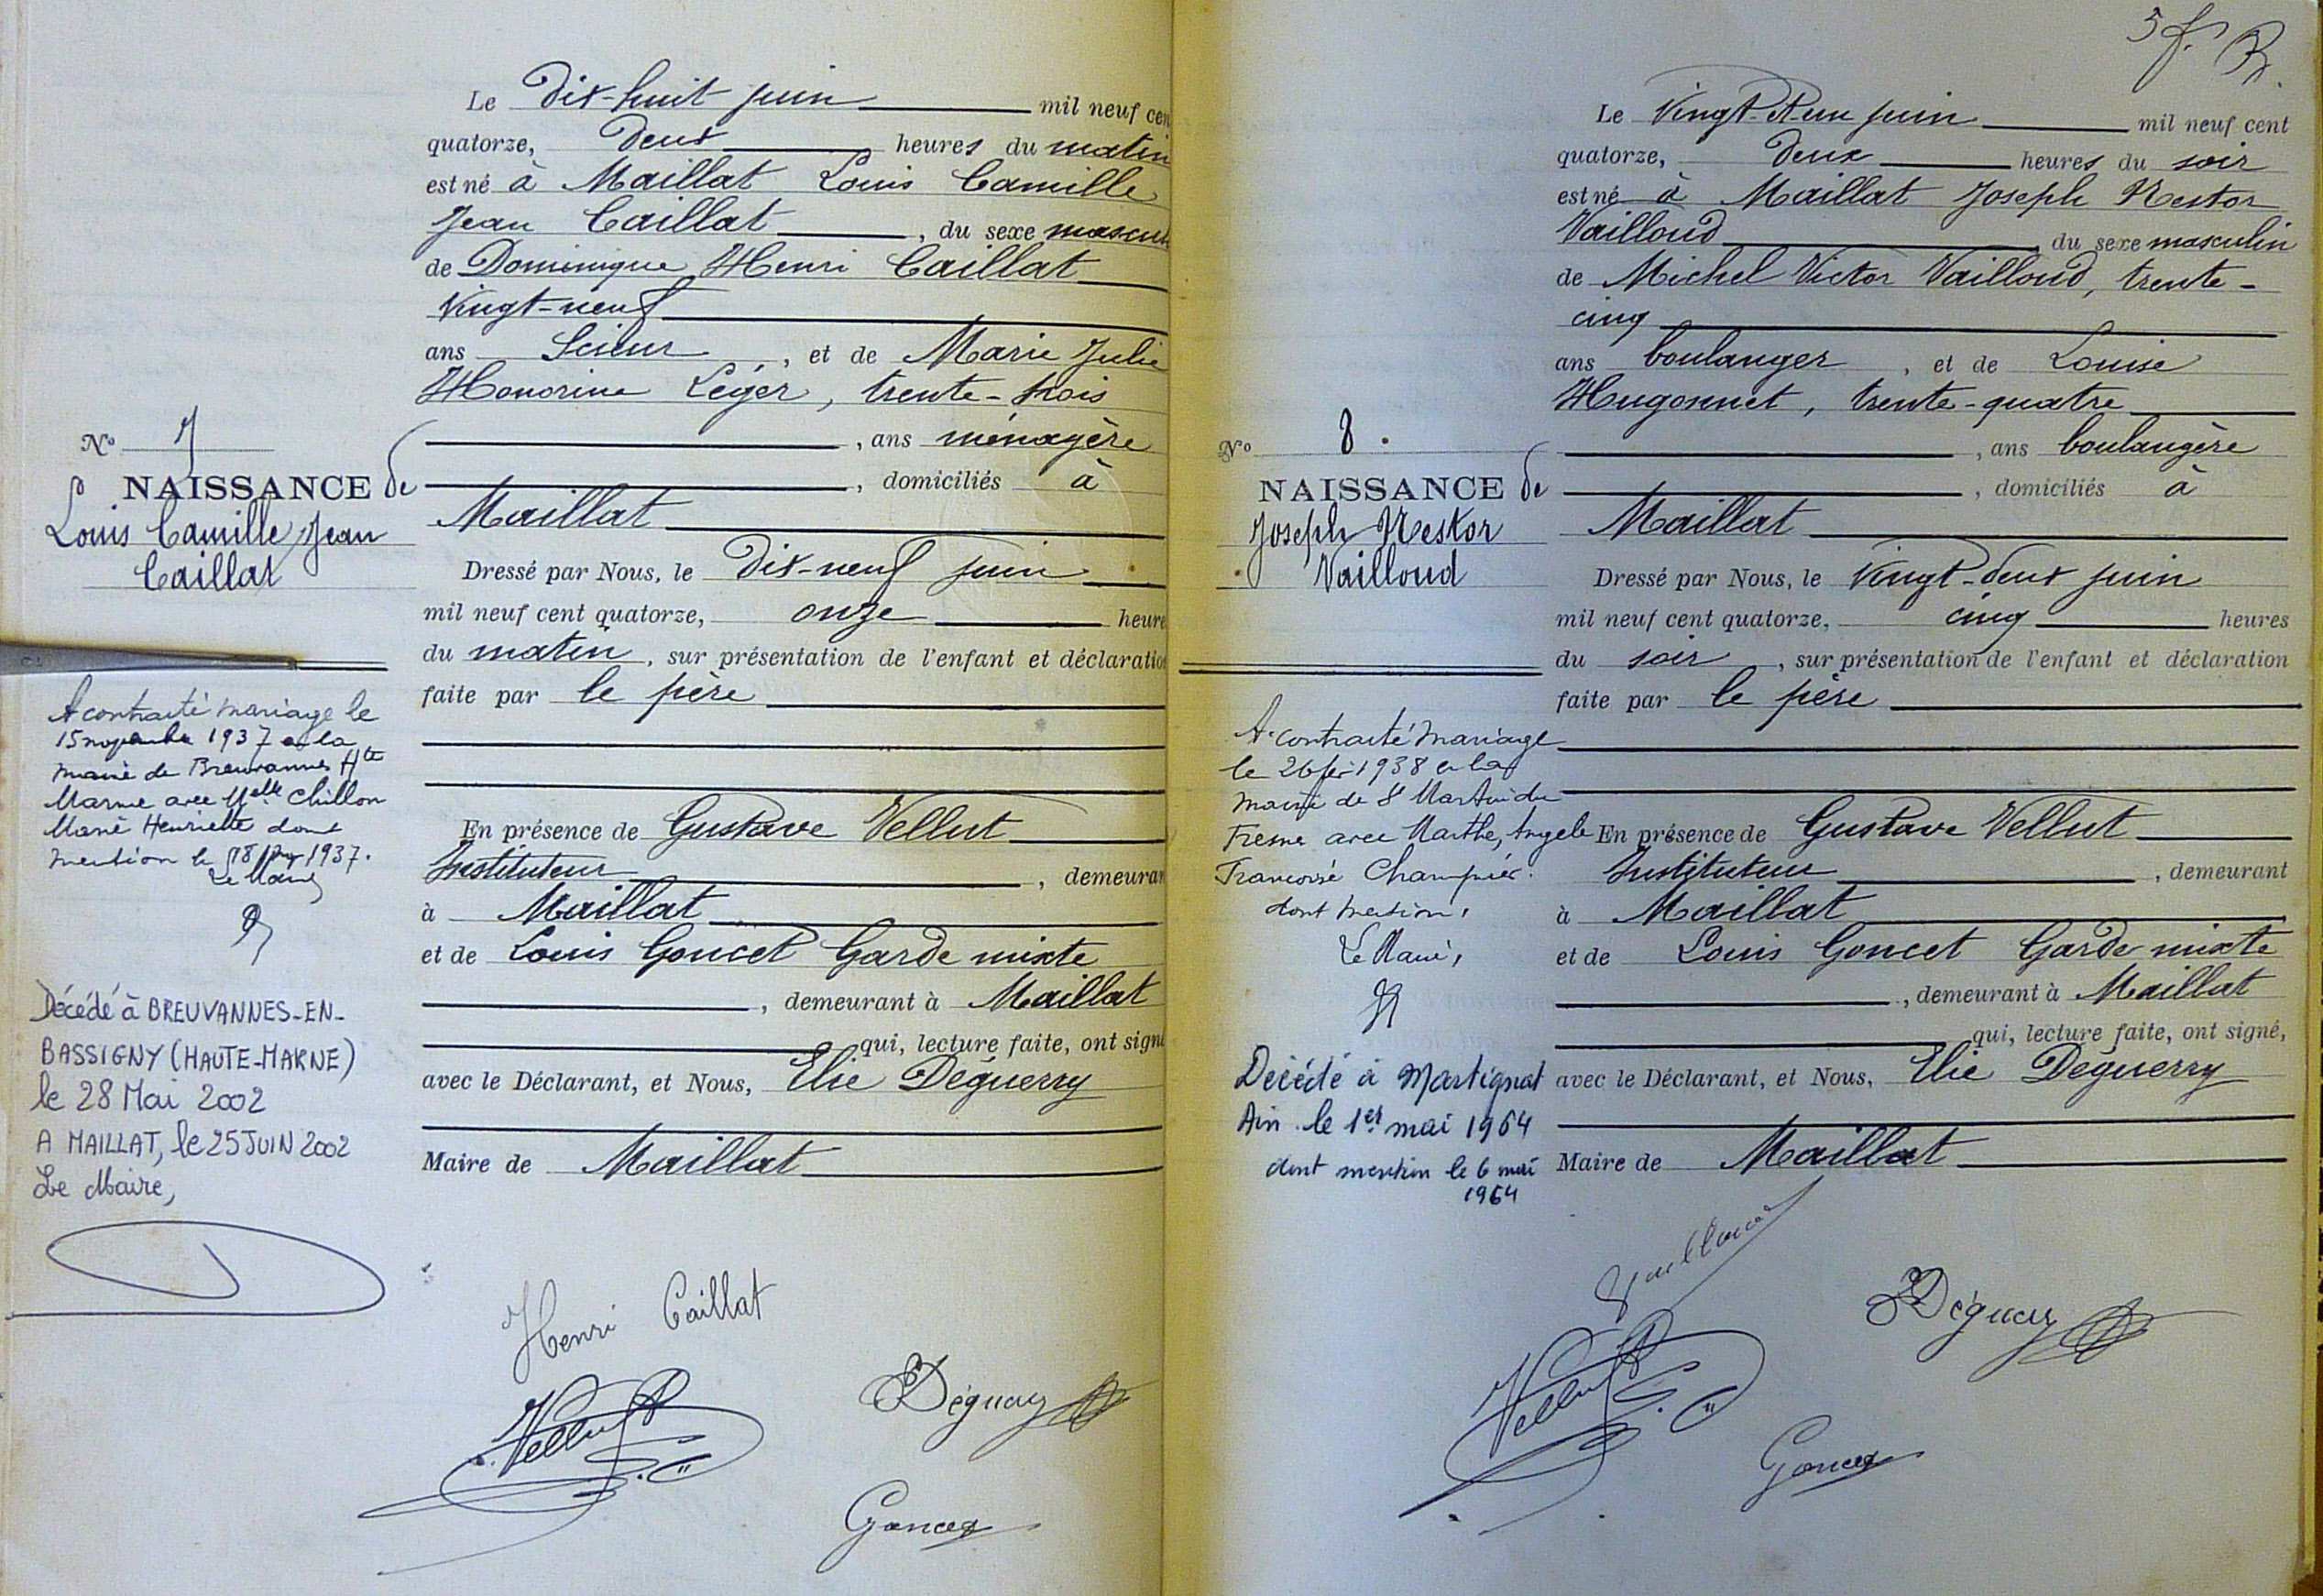 Le Dix-huit juin mil neuf cen
quatorze, Deux heures du matin
est né à Maillat Louis Camille
Jean Caillat, du sexe mascul
de Dominique Henri Caillat
Vingt-neuf
ans Scieur, et de Marie Julie
Honorine Léger, trente-trois
, ans ménagère
, domiciliés à
Maillat
Dressé par Nous, le Dix-neuf juin
mil neuf cent quatorze, onze heure
du matin, sur présentation de l'enfant et déclaratio
faite par le père
En présence de Gustave Vellut
Instituteur, demeuran
à Maillat
et de Louis Goncet Garde mixte
, demeurant à Maillat
qui, lecture faite, ont signé
avec le Déclarant, et Nous, Elie Déguerry
Maire de Maillat
N° 7
NAISSANCE de
Louis Camille Jean
Caillat
A contracté mariage le
15 novembre 1937 à la
mairie de Breuvannes Hte
Marne avec Melle Chillon
Marie Henriette dont
mention le 18 1937.
Le Maire
Décédé à BREUVANNES-EN-
BASSIGNY (HAUTE-MARNE)
le 28 Mai 2002
A MAILLAT, le 25 JUIN 2002
Le Maire,
Henri Caillat
Vellut
Déguerry
Goncet
5 f.
Le Vingt-et-un juin mil neuf cent
quatorze, Deux heures du soir
est né à Maillat Joseph Nestor
Vailloud du sexe masculin
de Michel Victor Vailloud, trente-
cinq
ans boulanger, et de Louise
Hugonnet, trente-quatre
, ans boulangère
, domiciliés à
Maillat
Dressé par Nous, le Vingt-deux juin
mil neuf cent quatorze, cinq heures
du soir, sur présentation de l'enfant et déclaration
faite par le père
En présence de Gustave Vellut
Instituteur, demeurant
à Maillat
et de Louis Goncet Garde mixte
, demeurant à Maillat
qui, lecture faite, ont signé,
avec le Déclarant, et Nous, Elie Déguerry
Maire de Maillat
N° 8.
NAISSANCE de
Joseph Nestor
Vailloud
A contracté mariage
le 26 fév 1938 à la
mairie de St Martin du
Fresne avec Marthe, Angele
Francoise Champier.
dont mention,
Le Maire,
Décédé à Martignat
Ain le 1er mai 1964
dont mention le 6 mai
1964
Vailloud
Vellut
Déguerry
Goncet